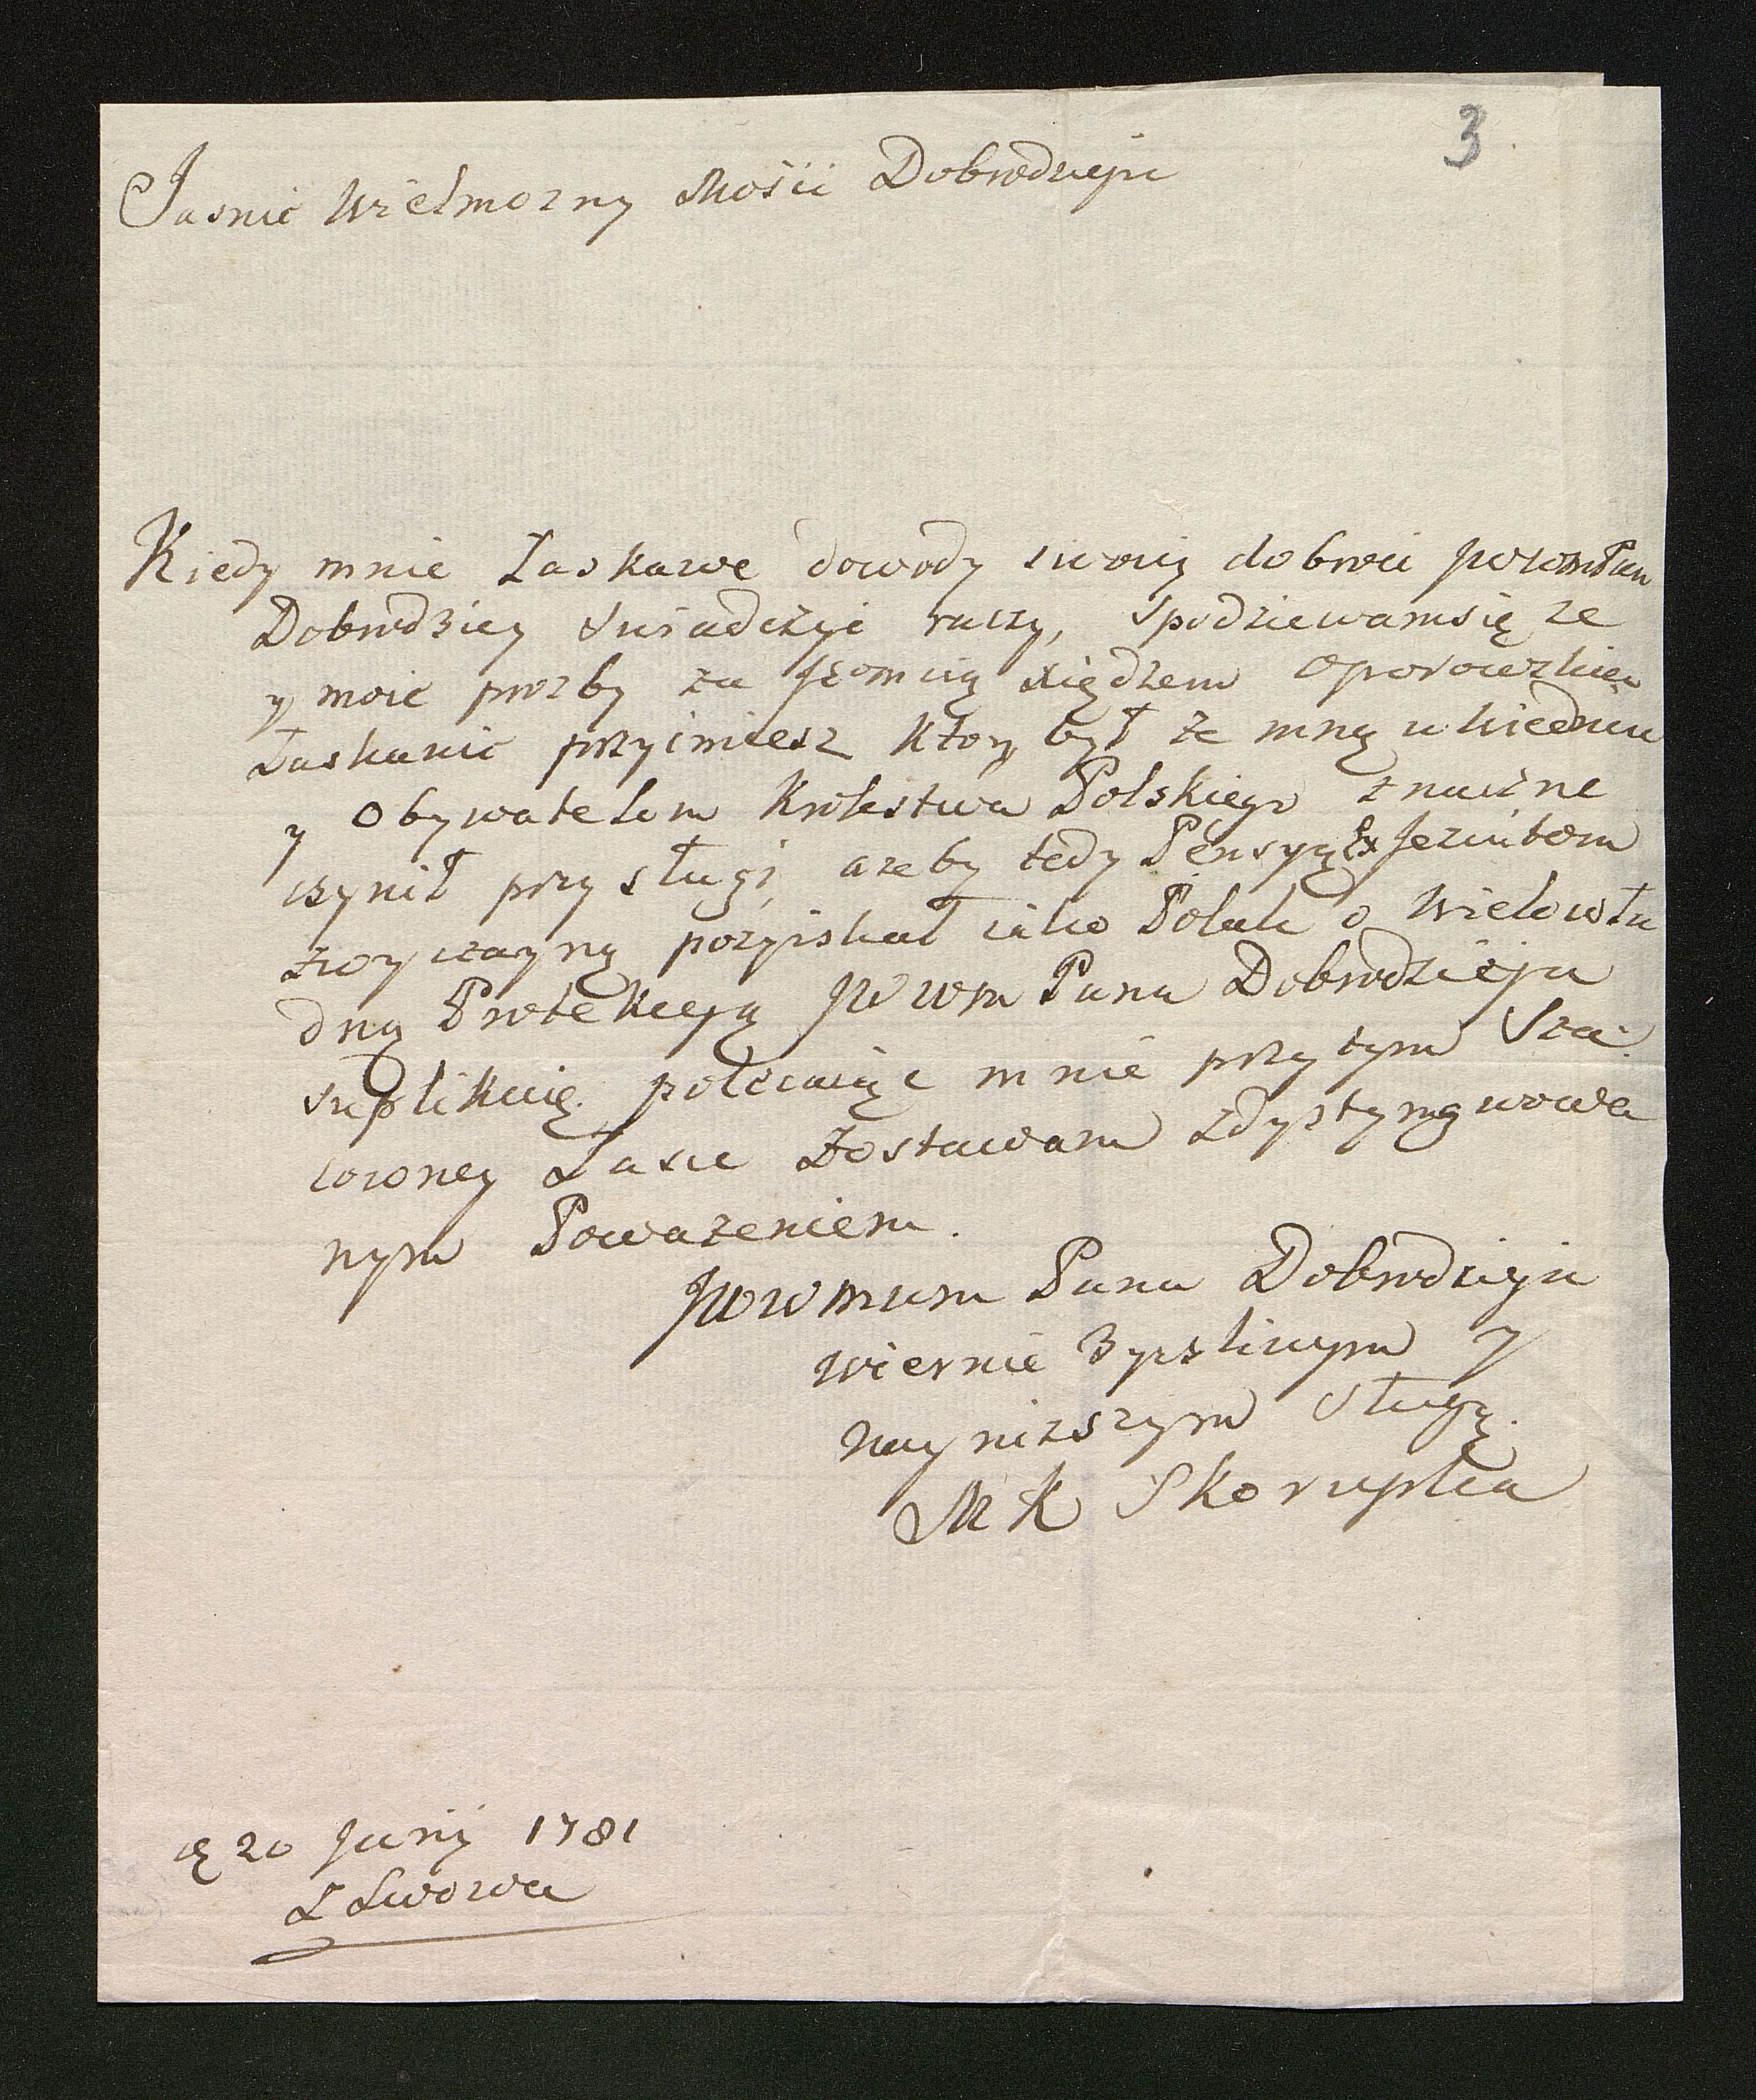 3
Jasnie Wielmozny Mości Dobrodzieju
Kiedy mnie Łaskawe dowody swoiy dobroci JWWMPan
Dobrodziey Swiadczyć raczy, Spodziewamsię ze
y moie prozby za Jeomcią xiędzem Oporowskiem
Łaskawie przyimiesz ktory był ze mną w Wiedniu
y Obywatelom Krolestwa Polskiego znaczne
czynił przysługi, azeby tedy Pensyą Ex Jezuitom
zwyczayną pozyiskał iako Polak o Wielowła
dną Protekcyą JWWM Pana Dobrodzieja
suplikuię. polecaiąc mnie przytym Sza
cowney Łasce Zostawam zdystyngwowa
nym Powazeniem.
JWWMM Pana Dobrodzieja
wiernie Zyczliwym y
nayniszszym Sługą.
MK Skorupka
20 Junij 1781
Z Lwowa